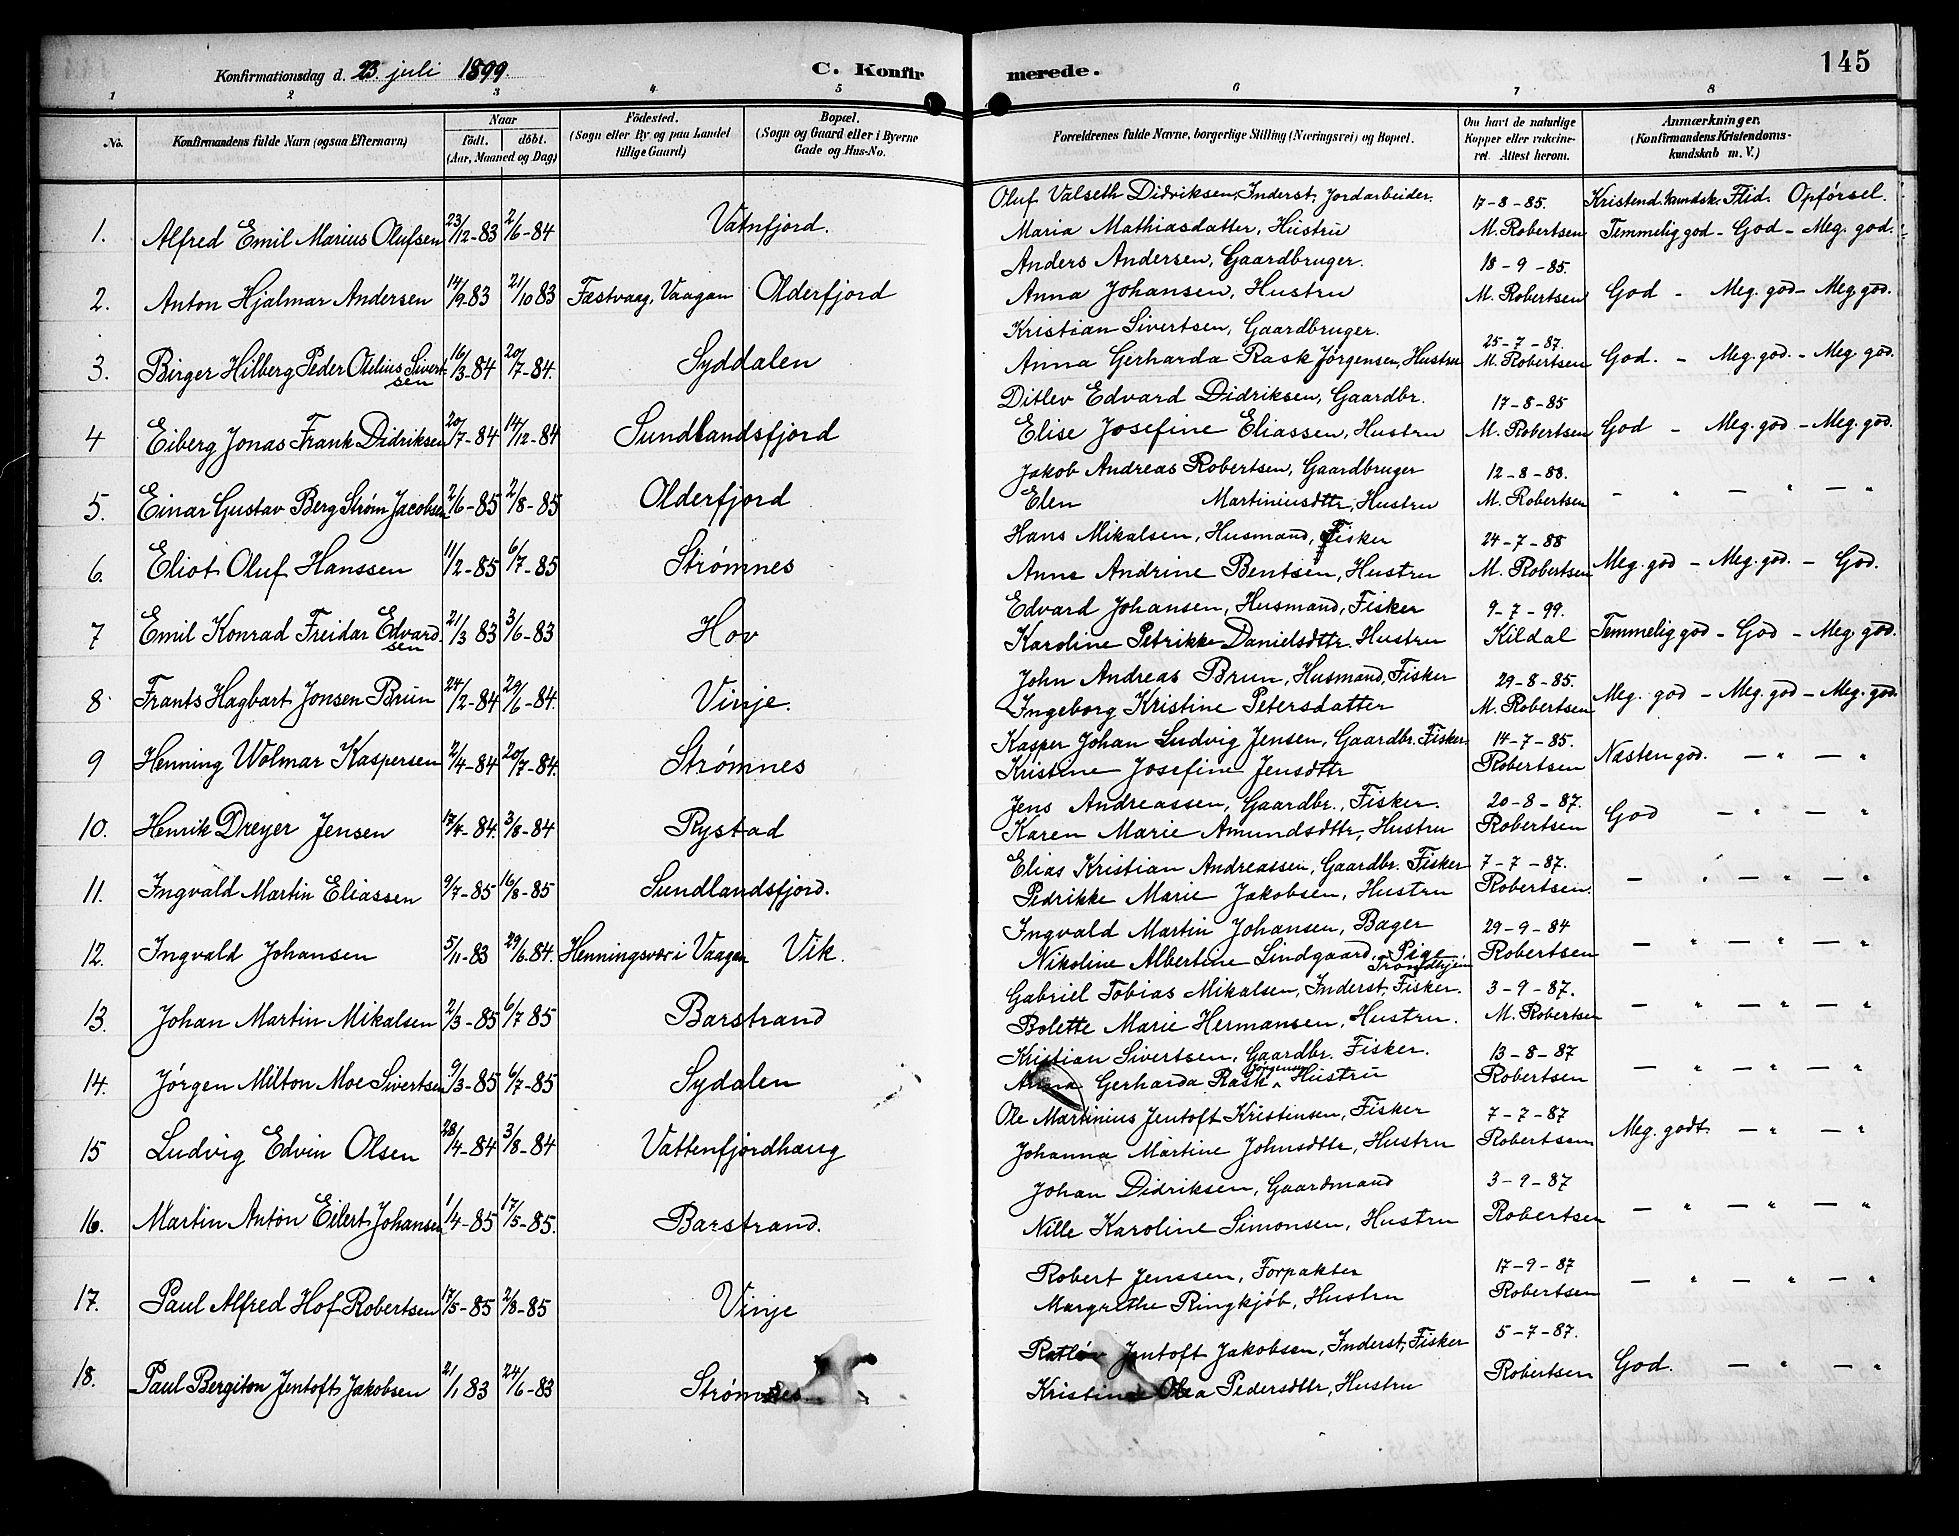 Konfirmationsdag d. 23. juli 1899. C. Konfirmerede. 145
1 2 3 4 5 6 7 8
No. Konfirmandens fulde Navn (ogsaa Efternavn)
Naar
født. døbt.
(Aar, Maaned og Dag)
Fødested.
(Sogn eller By og paa Landet
tillige Gaard)
Bopæl.
(Sogn og Gaard eller i Byerne
Gade og Hus-No.
Forældrenes fulde Navne, borgerlige Stilling (Næringsvei) og Bopæl.
Om havt de naturlige
Kopper eller vakcine-
ret. Attest herom.
Anmærkninger.
(Konfirmandens Kristendoms-
kundskab m. V.)
Kristend. kundsk. Flid. Opførsel.
1. Alfred Emil Marius Olufsen 23/12-83 2/6-84 Vatnfjord.
Oluf Valseth Didriksen, Inderst, Jordarbeider. 17-8-85.
Maria Mathiasdatter, Hustru M. Robertsen Temmelig god - God - Meg. god.
2. Anton Hjalmar Andersen 14/9-83 21/10 83 Fæstvaag, Vaagan Olderfjord
Anders Andersen, Gaardbruger. 18-9-85.
Anna Johansen, Hustru M. Robertsen God - Meg. god - Meg. god.
3. Birger Hilberg Peder Otelius Sivert-
sen 16/3-84 20/7-84. Syddalen
Kristian Sivertsen, Gaardbruger. 25-7-87.
Anna Gerharda Rask Jørgensen, Hustru M. Robertsen God. - Meg. god. - Meg. god.
4 Eiberg Jonas Frank Didriksen 20/7-84 14/12-84 Sundlandsfjord
Ditlev Edvard Didriksen, Gaardbr. 17-8-85
Elise Josefine Eliassen, Hustru M. Robertsen God - Meg. god - Meg. god.
5. Einar Gustav Berg Strøm Jacobsen 2/6-85 2/8-85 Olderfjord
Jakob Andreas Robertsen, Gaardbruger 12-8-88.
Elen Martiniusdttr, Hustru M. Robertsen - " - " - "
6. Eliot Oluf Hanssen 11/2-85 6/7-85 Strømnes
Hans Mikalsen, Husmand, Fisker 24-7-88
Anne Andrine Bentsen, Hustru M. Robertsen Meg. god - Meg. god. - God.
7 Emil Konrad Freidar Edvard-
sen 21/3 83 3/6-83 Hov
Edvard Johansen, Husmand, Fisker 9-7-99.
Karoline Petrikke Danielsdttr. Hustru Kildal Temmelig god - God - Meg. god.
8 Frants Hagbart Jonsen Brun 24/2-84 29/6-84. Vinje.
John Andreas Brun, Husmand, Fisker 29-8-85.
Ingeborg Kristine Petersdatter M. Robertsen Meg. god - Meg. god - Meg. god.
9 Henning Wolmar Kaspersen 2/4-84 20/7-84. Strømnes
Kasper Johan Ludvig Jensen, Gaardbr. Fisker. 14-7-85.
Kristine Josefine Jensdttr Robertsen Næsten god. - " - "
10. Henrik Dreyer Jensen 17/4-84. 3/8-84 Rystad
Jens Andreassen, Gaardbr., Fisker. 20-8-87.
Karen Marie Amundsdttr, Hustru Robertsen God - " - "
11. Ingvald Martin Eliassen 9/7-85 16/8-85 Sundlandsfjord.
Elias Kristian Andreassen, Gaardbr. Fisker 7-7-87.
Pedrikke Marie Jakobsen, Hustru Robertsen. - " - " - "
12. Ingvald Johansen 5/11-83 29/6.84. Henningsvær i Vaagen Vik.
Ingvald Martin Johansen, Bager 29-9-84
Nikoline Albertine Lindgaard, Pige Robertsen - " - " - "
Trondhjem
13. Johan Martin Mikalsen 2/3-85 6/7 85 Barstrand
Gabriel Tobias Mikalsen, Inderst, Fisker. 3-9-87.
Bolette Marie Hermansen, Hustru. M. Robertsen - " - " - "
14. Jørgen Milton Moe Sivertsen 9/3-85 6/7-85 Sydalen
Kristian Sivertsen, Gaardbr. Fisker. 13-8-87
Anna Gerharda Rask Jørgensen Hustru Robertsen - " - " - "
15 Ludvig Edvin Olsen 28/4-84 3/8-84 Vattenfjordhaug
Ole Martinius Jentoft Kristensen, Fisker 7-7-87
Johanna Martine Johnsdttr, Hustru Robertsen Meg. godt - " - "
16. Martin Anton Eilert Johansen 1/4-85 17/5-85. Barstrand.
Johan Didriksen, Gaardmand 3-9-87
Nille Karoline Simonsen, Hustru Robertsen - " - " - "
17. Paul Alfred Hof Robertsen 17/5-85 2/8-85 Vinje
Robert Jenssen, Forpakter 17-9-87
Margrethe Ringkjøb, Hustru Robertsen - " - " - "
18. Paul Bergiton Jentoft Jakobsen 21/1 83 24/6-83 Strømnes
Jentoft Jakobsen, Inderst, Fisker 5-7-87.
Kristine Olea Pedersdttr, Hustru Robertsen God. - " - "